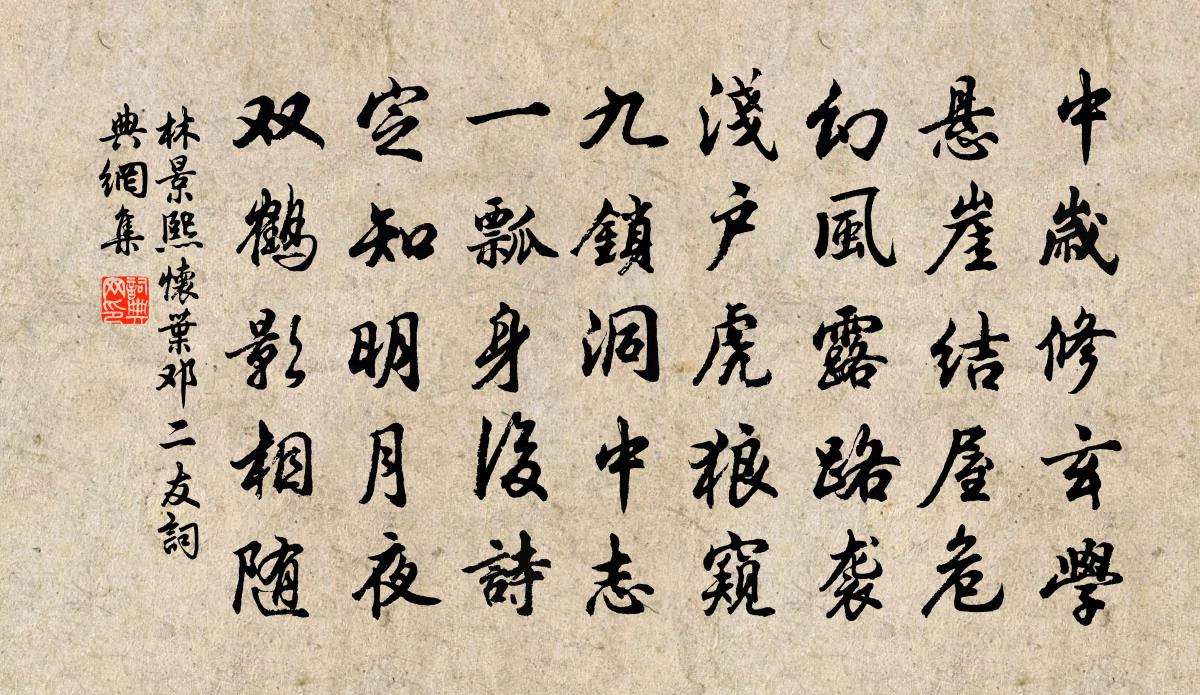 中歲修玄學
悬崖结屋危
幻風露路袭
淺户虎狼窺
九鎖洞中志
一瓢身後詩
定知明月夜
双鶴影相随
林景熙懷葉邓二友詞
典網集
詞典
网印